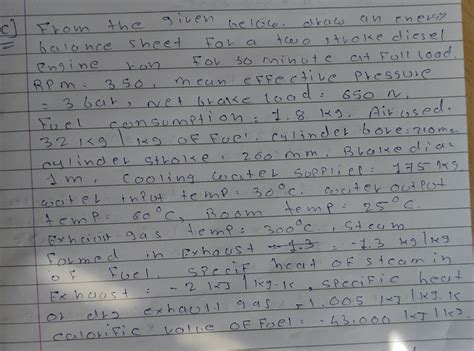 c] From the given below. draw an energy
balance sheet for a two stroke diesel
engine run for 30 minute at full load.
RPM: 350, mean effective pressure
= 3 bar, net brake load: 650 N,
Fuel consumption: 1.8 kg, Air used.
32 kg / kg of fuel. cylinder bore: 210mm
cylinder stroke: 260 mm. Brake dia:
1m. Cooling water supplied: 175 kg,
water input temp: 30°C, water output
temp: 60°C, Room temp: 25°C.
Exhaust gas temp: 300°C, Steam
formed in Exhaust - 1.3 kg/kg
of fuel. specif heat of steam in
Exhaust: - 2 kJ/kg.k, specific heat
of dry exhaust gas = 1.005 kJ/kg.k
calorific value of fuel: -43.000 kJ/kg.